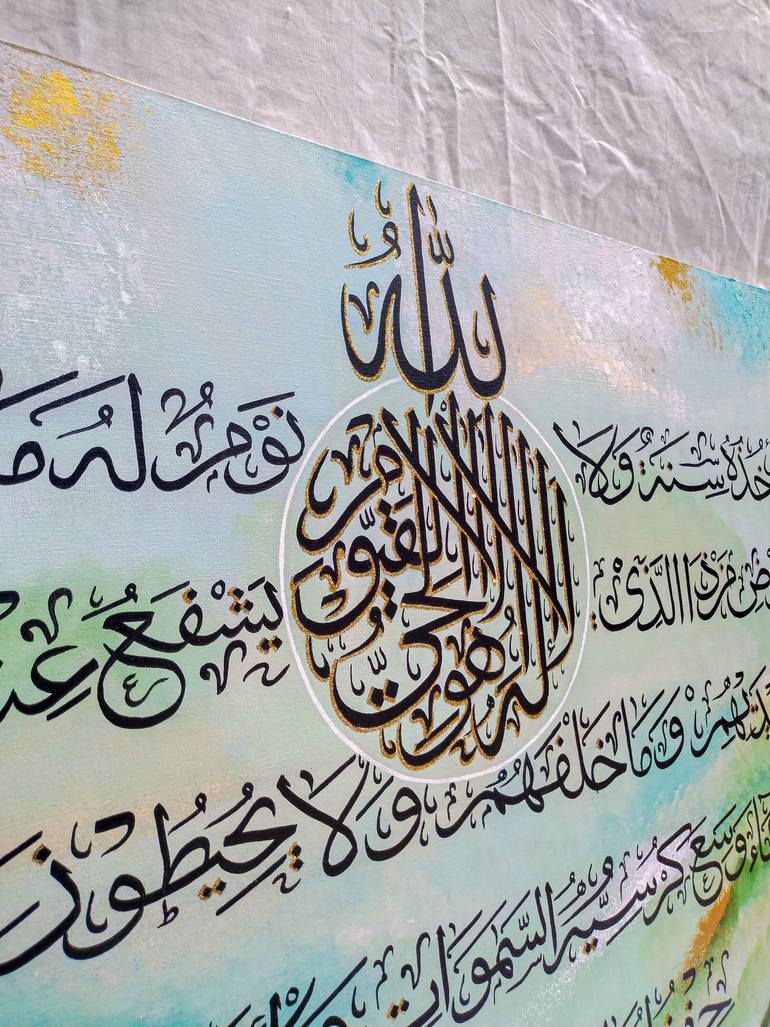 الله
لا إله إلا هو الحي القيوم
تَأْخُذُهُ سِنَةٌ وَلَا نَوْمٌ لَهُ مَا
مَنْ ذَا الَّذِي يَشْفَعُ
أَيْدِيهِمْ وَمَا خَلْفَهُمْ وَلَا يُحِيطُونَ
وَسِعَ كُرْسِيُّهُ السَّمَوَاتِ